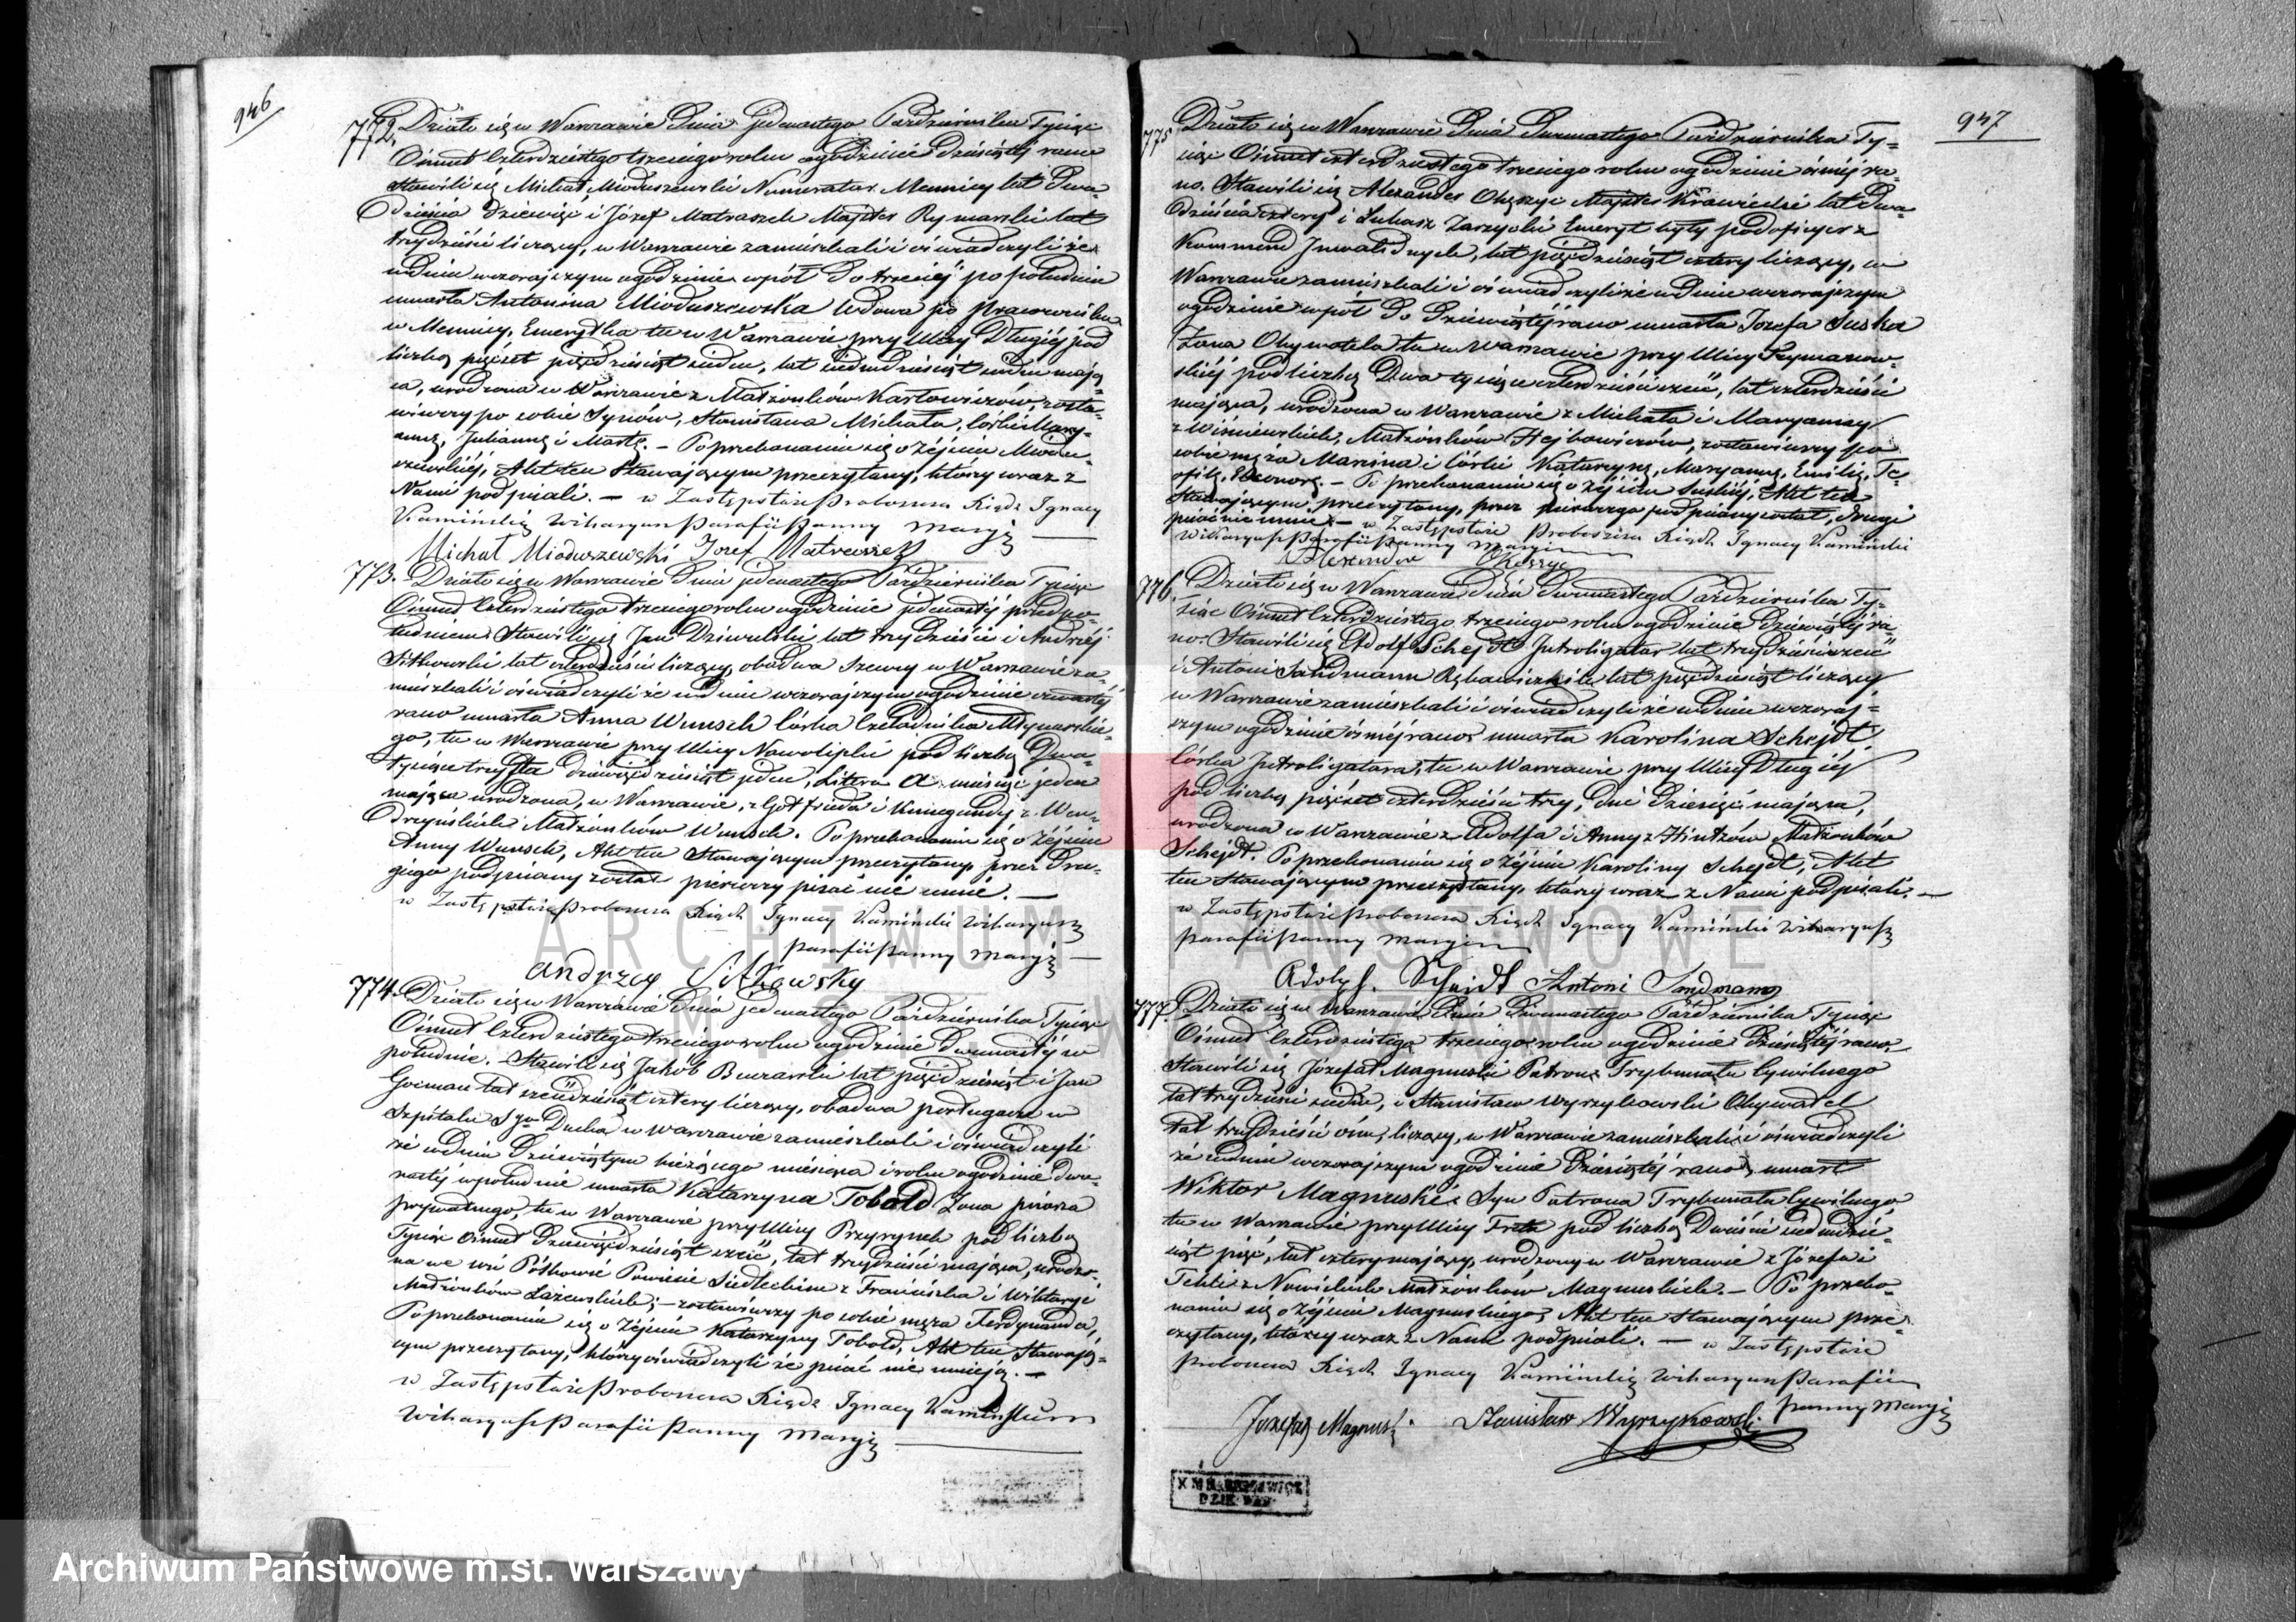 946
772. Działo się w Warszawie Dnia jedenastego Października Tysiąc
Ośmset Czterdziestego trzeciego roku o godzinie dziesiątej rano
Stawili się Michał Mioduszewski Numerator Mennicy lat Dwa=
dzieścia dziewięć i Józef Matraszek Majster Rymarski lat
trzydzieści liczący, w Warszawie zamieszkali i oświadczyli że
w dniu wczorajszym o godzinie wpół do trzeciej po południu
umarła Antonina Mioduszewska Wdowa po Pracowniku
w Mennicy, Emerytka tu w Warszawie przy Ulicy Długiej pod
liczbą pięćset pięćdziesiąt siedm, lat siedmdziesiąt siedm mają=
ca, urodzona w Warszawie z Małżonków Karłowiczów, zosta=
wiwszy po sobie Synów, Stanisława Michała, Córki Mary=
annę, Juliannę i Martę. – Po przekonaniu się o Zejściu Miodu=
szewskiej, Akt ten Stawającym przeczytany, który wraz z
Nami podpisali. – w Zastępstwie Proboszcza Ksiądz Ignacy
Kamiński Wikaryusz Parafii Panny Maryi
Michał Mioduszewski Jozef Matraszek
773. Działo się w Warszawie Dnia jedenastego Października Tysiąc
Ośmset Czterdziestego trzeciego roku o godzinie jedenastej przed po=
łudniem. Stawili się Jan Dziwulski lat trzydzieści i Andrzej
Sitkowski lat czterdzieści liczący, obadwa Szewcy w Warszawie za=
mieszkali i oświadczyli że w dniu wczorajszym o godzinie czwartej
rano umarła Anna Wunsch Córka Czeladnika Młynarskie=
go, tu w Warszawie przy Ulicy Nowolipki pod liczbą Dwa
tysiące trzysta dziewięćdziesiąt jeden, Litera A miesiąc jeden
mająca urodzona, w Warszawie, z Gotfrieda i Kunegundy z Wen=
drzyńskich Małżonków Wunsch. Po przekonaniu się o Zejściu
Anny Wunsch, Akt ten Stawającym przeczytany, przez Dru=
giego podpisany został pierwszy pisać nie umie. –
w Zastępstwie Proboszcza Ksiądz Ignacy Kamiński Wikaryusz
Parafii Panny Maryi
Andrzey Sitkowsky
774. Działo się w Warszawie Dnia jedenastego Października Tysiąc
Ośmset Czterdziestego trzeciego roku o godzinie Dwunastej w
południe. – Stawili się Jakób Burzawski lat pięćdziesiąt i Jan
Goiman lat sześćdziesiąt cztery liczący, obadwa posługacze w
Szpitalu Sgo Ducha w Warszawie zamieszkali i oświadczyli
że w dniu Dziewiątym bieżącego miesiąca i roku o godzinie dwu=
nastej w południe umarła Katarzyna Tobold Żona pisarza
prywatnego, tu w Warszawie przy Ulicy Przyrynek pod liczbą
Tysiąc Ośmset Dziewięćdziesiąt sześć, lat trzydzieści mająca, urodzo=
na we wsi Póśkowie Powiecie Siedleckim z Franciszka i Wiktoryi
Małżonków Łazewskich; – zostawiwszy po sobie męża Ferdynanda,
Po przekonaniu się o Zejściu Katarzyny Tobold, Akt ten Stawają=
cym przeczytany, którzy oświadczyli że pisać nie umieją. –
w Zastępstwie Proboszcza Ksiądz Ignacy Kamiński
Wikaryusz Parafii Panny Maryi
947
775 Działo się w Warszawie Dnia Dwunastego Października Ty=
siąc Ośmset czterdziestego trzeciego roku o godzinie ósmej ra=
no. Stawili się Alexander Okęszyc Majster Krawiecki lat Dwa=
dzieścia cztery i Łukasz Zarzycki Emeryt były podoficyer z
Kommend Inwalidnych, lat pięćdziesiąt cztery liczący, w
Warszawie zamieszkali i oświadczyli że w Dniu wczorajszym
o godzinie wpół do Dziewiątej rano umarła Jozefa Suska
Żona Obywatela tu w Warszawie przy Ulicy Szymanow=
skiej pod liczbą Dwa tysiące czterdzieści sześć, lat czterdzieści
mająca, urodzona w Warszawie z Michała i Maryanny
z Wiśniewskich, Małżonków Hejbowiczów, zostawiwszy po
sobie męża Marcina i Córki Katarzynę, Maryannę, Emilię, Te=
ofilę, Eleonorę. – Po przekonaniu się o Zejściu Suskiej, Akt ten
Stawającym przeczytany, przez pierwszego podpisany został, drugi
pisać nie umie. – w Zastępstwie Proboszcza Ksiądz Ignacy Kamiński
Wikaryusz Parafii Panny Maryi
Alexander Okeszyc
776. Działo się w Warszawie Dnia Dwunastego Października Ty=
siąc Ośmset Czterdziestego trzeciego roku o godzinie Dziewiątej ra=
no. Stawili się Adolf Schejdt Introligator lat trzydzieści sześć
i Antoni Sandmann Rękawicznik lat pięćdziesiąt liczący
w Warszawie zamieszkali i oświadczyli że w dniu wczoraj=
szym o godzinie ósmej rano umarła Karolina Schejdt,
Córka Introligatora, tu w Warszawie przy Ulicy Długiej
pod liczbą pięćset czterdzieści trzy, dni dziesięć mająca,
urodzona w Warszawie z Adolfa i Anny z Hintzów Małżonków
Schejdt. Po przekonaniu się o Zejściu Karoliny Schejdt, Akt
ten Stawającym przeczytany, który wraz z Nami podpisali. –
w Zastępstwie Proboszcza Ksiądz Ignacy Kamiński Wikaryusz
Parafii Panny Maryi
Adolph. Scheidt Antoni Sandmann
777. Działo się w Warszawie Dnia Dwunastego Października Tysiąc
Ośmset Czterdziestego trzeciego roku o godzinie Dziesiątej rano.
Stawili się Józefat Magnuski Patron Trybunału Cywilnego
lat trzydzieści siedm, i Stanisław Wyrzykowski Obywatel
lat trzydzieści ośm, liczący, w Warszawie zamieszkali i oświadczyli
że w dniu wczorajszym o godzinie Dziesiątej rano, umarł
Wiktor Magnuski Syn Patrona Trybunału Cywilnego
tu w Warszawie przy Ulicy Freta pod liczbą Dwieście siedmdzie=
siąt pięć, lat cztery mający, urodzony w Warszawie z Józefa i
Tekli z Nowickich Małżonków Magnuskich. – Po przeko=
naniu się o Zejściu Magnuskiego, Akt ten Stawającym prze=
czytany, którzy wraz z Nami podpisali. – w Zastępstwie
Proboszcza Ksiądz Ignacy Kamiński Wikaryusz Parafii
Panny Maryi
Jozefat Magnuski. Stanisław Wyrzykowski
ARCHIWUM PAŃSTWOWE
M. ST. WARSZAWY
Archiwum Państwowe m.st. Warszawy